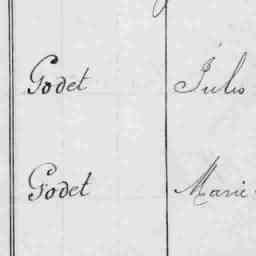 Godet Jules
Godet Marie